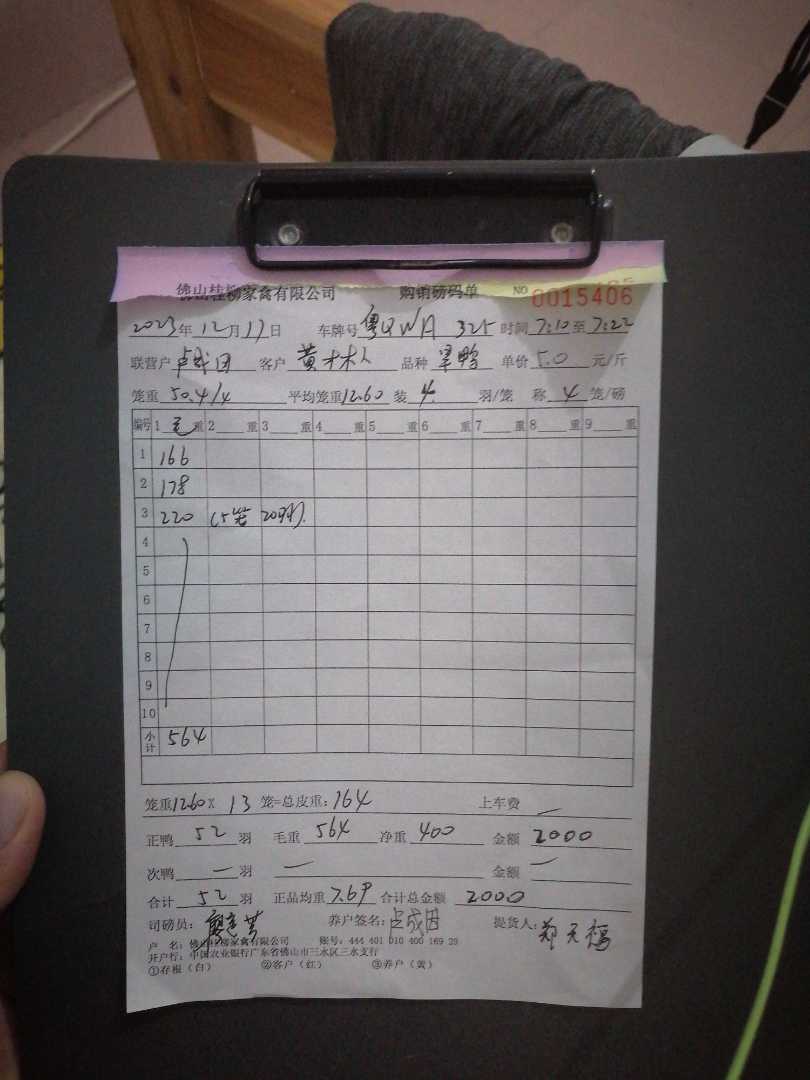 佛山桂柳家禽有限公司 购销磅码单 NO 0015406
2023年12月17日 车牌号 粤 WA 325 时间 7:10至7:22
联营户 卢成因 客户 黄木林 品种 鸭 单价 5.0 元/斤
笼重 50.4/4 平均笼重12.60 装 4 羽/笼 称 4 笼/磅
编号 1 毛 重 2 重 3 重 4 重 5 重 6 重 7 重 8 重 9 重
1 166
2 178
3 220 (5笼 20羽)
4
5
6
7
8
9
10
小计 564
笼重12.60 X 13 笼=总皮重: 164 上车费 —
正鸭 52 羽 毛重 564 净重 400 金额 2000
次鸭 — 羽 — 金额 —
合计 52 羽 正品均重 7.69 合计总金额 2000
司磅员: 养户签名: 卢成因 提货人: 郑天福
户 名: 佛山桂柳家禽有限公司 账号: 444 401 010 400 169 28
开户行: 中国农业银行广东省佛山市三水区三水支行
①存根(白) ②客户(红) ③养户(黄)